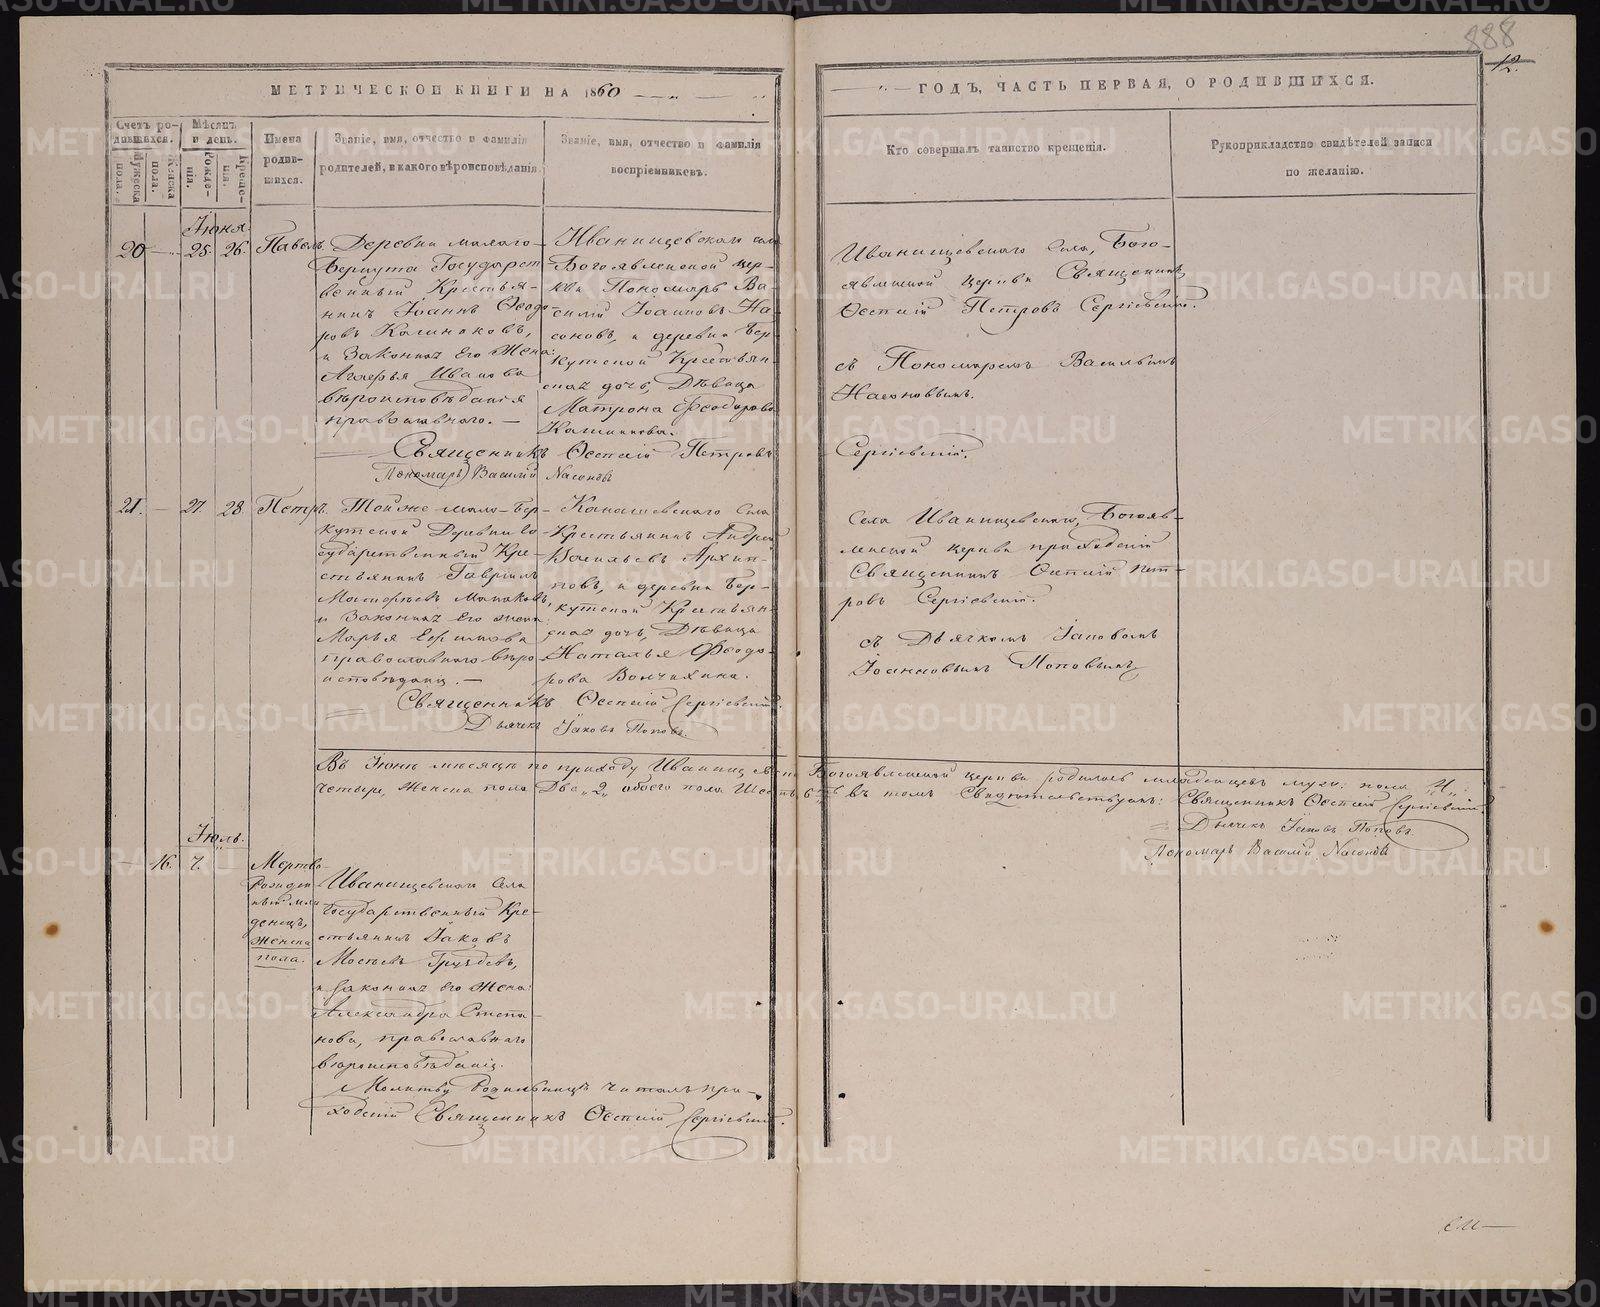 888
12.
МЕТРИЧЕСКОЙ КНИГИ НА 1860
ГОДЪ, ЧАСТЬ ПЕРВАЯ, О РОДИВШИХСЯ.
Счетъ ро-
дившихся.
Мужеска
пола.
Женска
пола.
Мѣсяцъ
и день.
Рожде-
нія.
Креще-
нія.
Имена
родив-
шихся.
Званіе, имя, отчество и фамилія
родителей, и какого вѣроисповѣданія.
Званіе, имя, отчество и фамилія
воспріемниковъ.
Кто совершалъ таинство крещенія.
Рукоприкладство свидѣтелей записи
по желанію.
Іюня
20 25. 26. Павелъ.
Деревни малаго
Беркута Государст
венный Крестья-
нинъ Іоаннъ Ѳеодо
ровъ Калинковъ,
и Законная Его Жена:
Агафья Иванова
вѣроисповѣданія
православнаго.
Иванищевскаго села
Богоявленской цер-
кви Пономарь Ва-
силій Іоанновъ На-
соновъ, и деревни Бер-
кутской Крестьян-
ская дочь, Дѣвица
Матрона Ѳеодорова
Калинкова.
Иванищевскаго Села, Бого-
явленской церкви Священникъ
Петровъ Сергіевскій.
съ Пономаремъ Васильемъ
Насоновымъ.
Священникъ Петровъ Сергіевскій.
Пономарь Василій Насоновъ
21. 27. 28. Петръ.
Той же мало-Бер-
кутской Деревни Го-
сударственный Кре-
стьянинъ Гавріилъ
и Законная Его жена:
Марья Ефимова
православнаго вѣро-
исповѣданія.
Канашевскаго Села
Крестьянинъ Андрей
Васильевъ Архип-
повъ, и деревни Бер-
кутской Крестьян-
ская дочь, Дѣвица
Наталья Ѳеодо-
рова
Села Иванищевскаго, Богояв-
ленской церкви приходскій
Священникъ Пет-
ровъ Сергіевскій.
съ Дьячкомъ Іаковомъ
Іоанновымъ Поповымъ
Священникъ Сергіевскій.
Дьячекъ Іаковъ Поповъ.
Въ Іюнѣ мѣсяцѣ по приходу Иванищевской Богоявленской церкви родилось младенцевъ муж: пола „4„:
четыре, Женска пола Два „2„ обоего пола Шесть 6 въ томъ Свидѣтельствуемъ: Священникъ Сергіевскій
Дьячекъ Іаковъ Поповъ.
Пономарь Василій Насоновъ
Іюль.
16. 7.
Мертво
рожден
ный мла
денецъ,
женска
пола.
Иванищевскаго Села
Государственный Кре-
стьянинъ Іаковъ
Груздевъ,
и Законная Его Жена:
Александра Степа-
нова, православнаго
вѣроисповѣданія.
Молитву Родильницѣ читалъ при-
ходскій Священникъ Сергіевскій.
METRIKI.GASO-URAL.RU